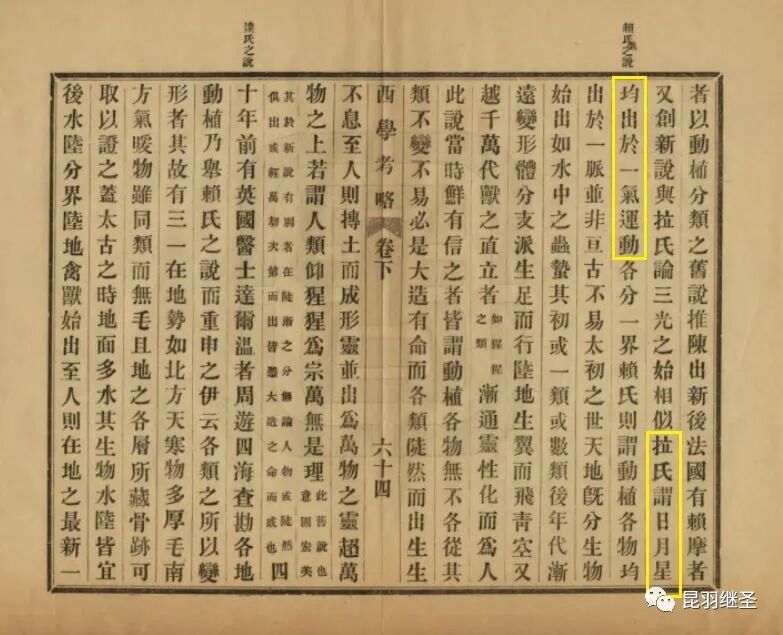 賴氏之說
者以動植分類之舊說推陳出新後法國有賴摩者
又創新說與拉氏論三光之始相似拉氏謂日月星
均出於一氣運動各分一界賴氏則謂動植各物均
出於一脈並非亘古不易太初之世天地旣分生物
始出如水中之蟲蟄其初或一類或數類後年代漸
遠變形體分支派生足而行陸地生翼而飛靑空又
越千萬代獸之直立者如猩猩之類漸通靈性化而爲人
此說當時鮮有信之者皆謂動植各物無不各從其
類不變不易必是大造有命而各類陡然而出生生
西學考略 卷下 六十四
不息至人則摶土而成形靈並出爲萬物之靈超萬
物之上若謂人類仰猩猩爲宗萬無是理此舊說也意固宏美
其於新說有別者在陡漸之分無論人物或陡然俱出或經萬劫次第而出皆憑大造之命而成也四
達氏之說
十年前有英國醫士達爾溫者周遊四海查勘各地
動植乃舉賴氏之說而重申之伊云各類之所以變
形者其故有三一在地勢如北方天寒物多厚毛南
方氣暖物雖同類而無毛且地之各層所藏骨跡可
取以證之蓋太古之時地面多水其生物水陸皆宜
後水陸分界陸地禽獸始出至人則在地之最新一
昆羽继圣